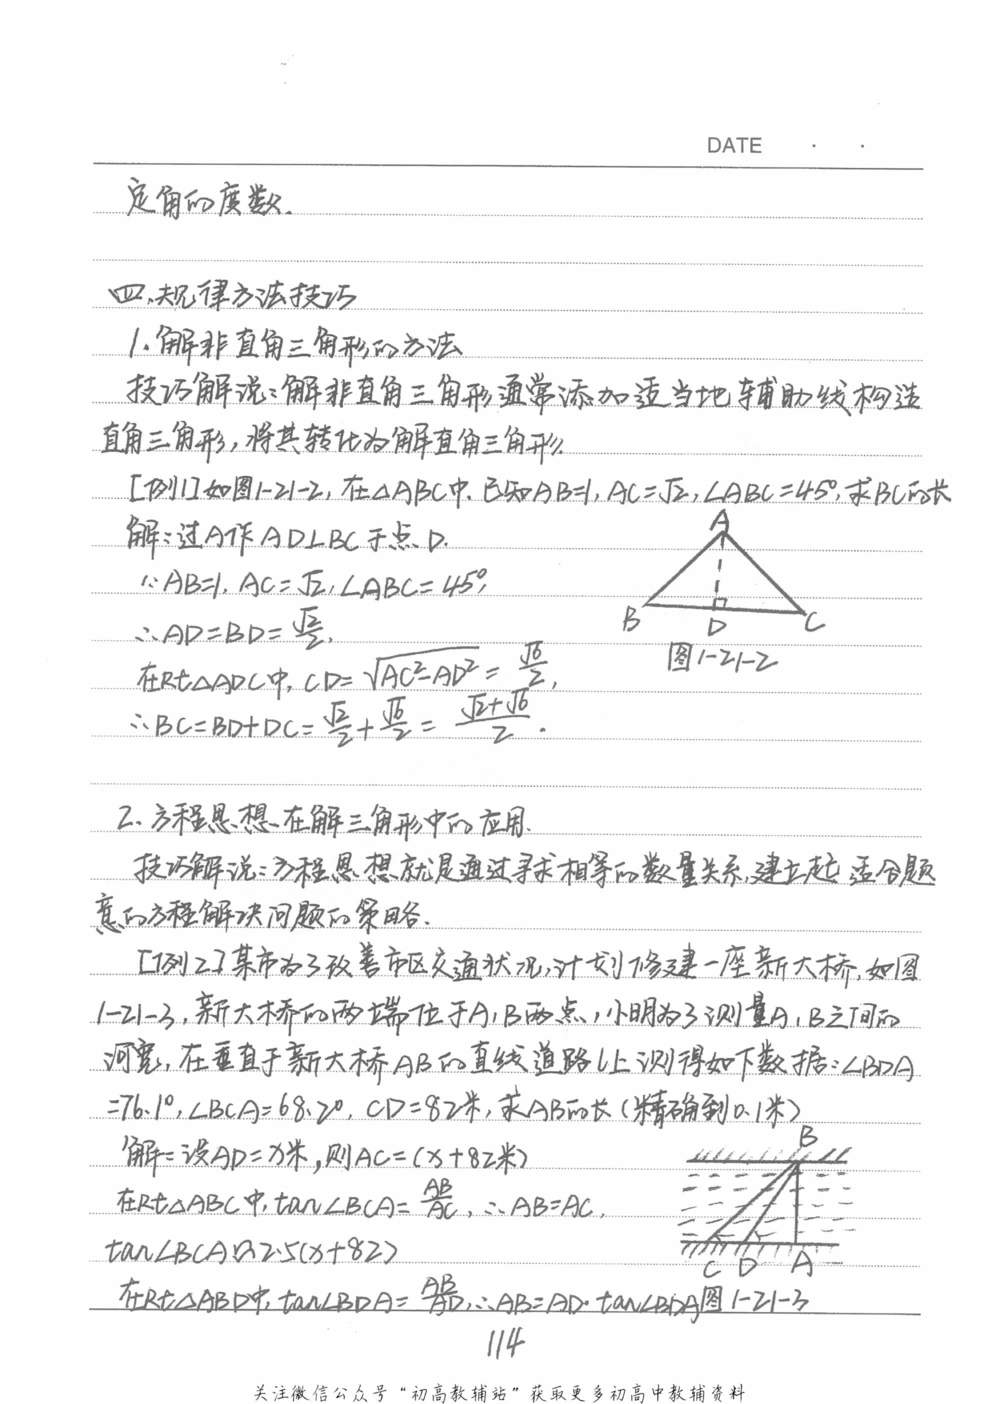 DATE · ·
定角的度数.
四.规律方法技巧
1.解非直角三角形的方法
技巧解说:解非直角三角形通常添加适当地辅助线构造
直角三角形,将其转化为解直角三角形.
[例1]如图1-21-2,在△ABC中.已知AB=1,AC=√2,∠ABC=45°,求BC的长
解:过A作AD⊥BC于点D.
∵AB=1,AC=√2,∠ABC=45°,
∴AD=BD=√2/2,
在Rt△ADC中,CD=√(AC²-AD²)=√6/2,
∴BC=BD+DC=√2/2+√6/2=(√2+√6)/2.
A
B
D
C
图1-21-2
2.方程思想在解三角形中的应用.
技巧解说:方程思想就是通过寻求相等的数量关系,建立起适合题
意的方程解决问题的策略.
[例2]某市为了改善市区交通状况,计划修建一座新大桥,如图
1-21-3,新大桥的两端位于A,B两点,小明为了测量A,B之间的
河宽,在垂直于新大桥AB的直线道路l上测得如下数据:∠BDA
=76.1°,∠BCA=68.2°,CD=82米,求AB的长(精确到0.1米)
解:设AD=x米,则AC=(x+82米)
在Rt△ABC中,tan∠BCA=AB/AC,∴AB=AC.
tan∠BCA≈2.5(x+82)
在Rt△ABD中,tan∠BDA=AB/AD,∴AB=AD·tan∠BDA
B
C D A
图1-21-3
114
关注微信公众号“初高教辅站”获取更多初高中教辅资料